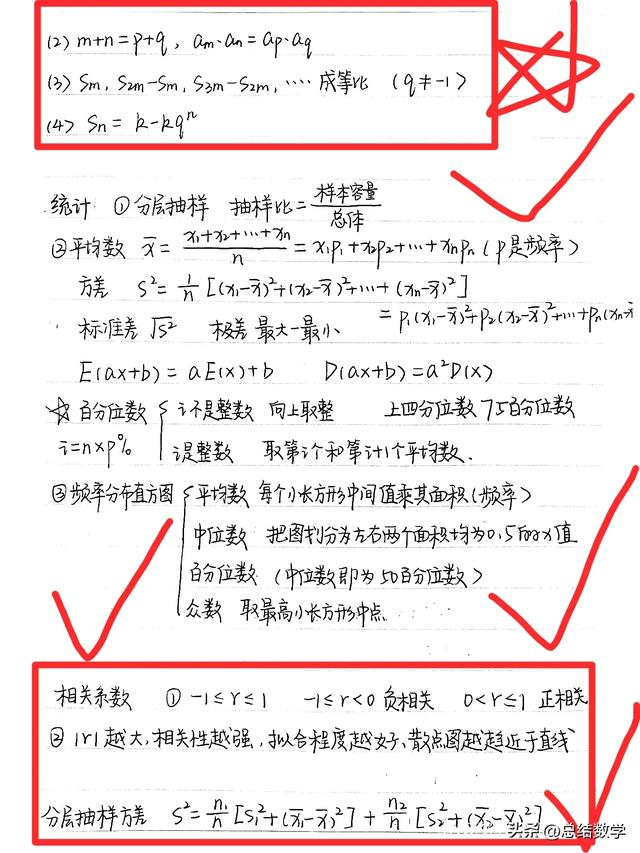 (2) m+n=p+q, am·an=ap·aq
(3) Sm, S2m-Sm, S3m-S2m, ···· 成等比 (q≠-1)
(4) Sn= k-kqⁿ
统计 ①分层抽样 抽样比=样本容量/总体
②平均数 x̄=(x1+x2+···+xn)/n=x1p1+x2p2+···+xnpn(p是频率)
方差 S²=1/n[(x1-x̄)²+(x2-x̄)²+···+(xn-x̄)²]
=p1(x1-x̄)²+p2(x2-x̄)²+···+pn(xn-x̄
标准差√S² 极差 最大-最小
E(ax+b)=aE(x)+b D(ax+b)=a²D(x)
☆百分位数 { i不是整数 向上取整 上四分位数 75百分位数
i=n×p% i是整数 取第i个和第i+1个平均数.
③频率分布直方图 { 平均数 每个小长方形中间值乘其面积(频率)
中位数 把图划分为左右两个面积均为0.5的x值
百分位数 (中位数即为50百分位数)
众数 取最高小长方形中点
相关系数 ①-1≤r≤1 -1≤r<0 负相关 0<r≤1 正相关
②|r|越大,相关性越强,拟合程度越好、散点图越趋近于直线
分层抽样方差 S²=n1/n[S1²+(x̄1-x̄)²]+n2/n[S2²+(x̄2-x̄)²]
头条@总结数学